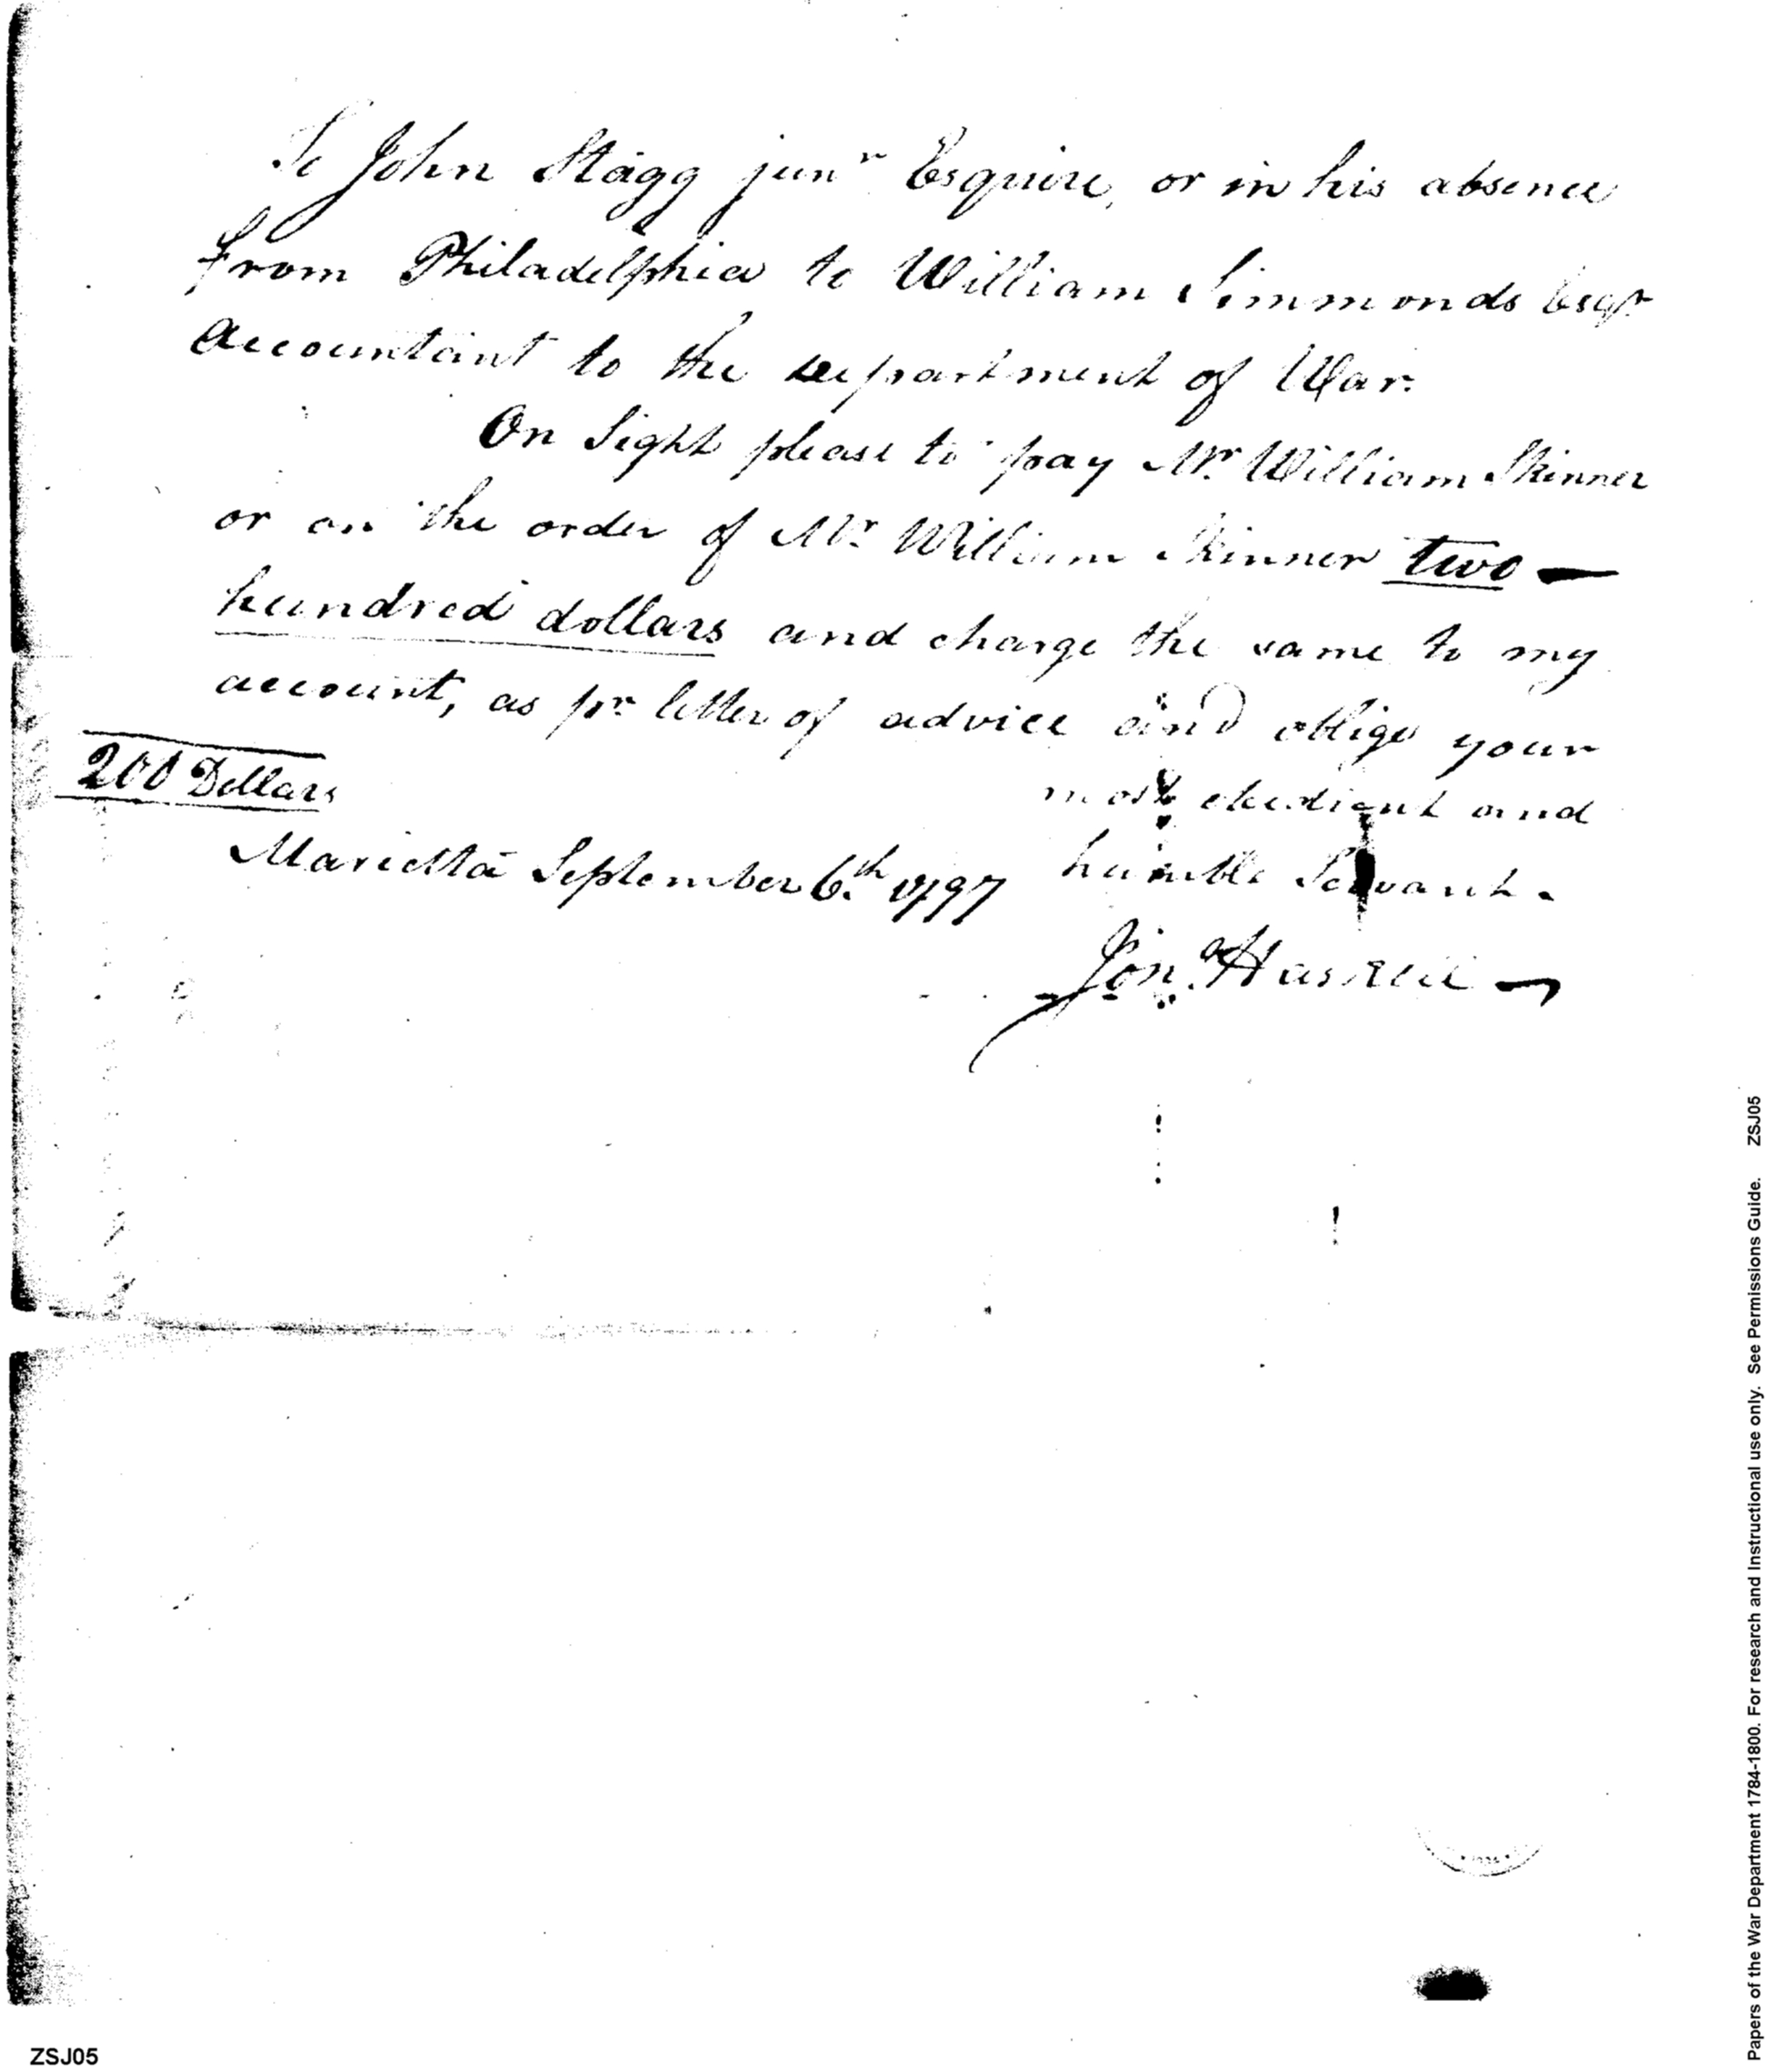 To John Stagg junr Esquire, or in his absence
from Philadelphia to William Simmonds Esqr
Accountant to the department of War.
On Sight please to pay Mr. William Skinner
or on the order of Mr. William Skinner two
hundred dollars and charge the same to my
account, as pr letter of advice and oblige your
200 Dollars
most obedient and
Marietta September 6th 1797
humble Servant.
Jona. Haskell
Papers of the War Department 1784-1800. For research and Instructional use only. See Permissions Guide. ZSJ05
ZSJ05